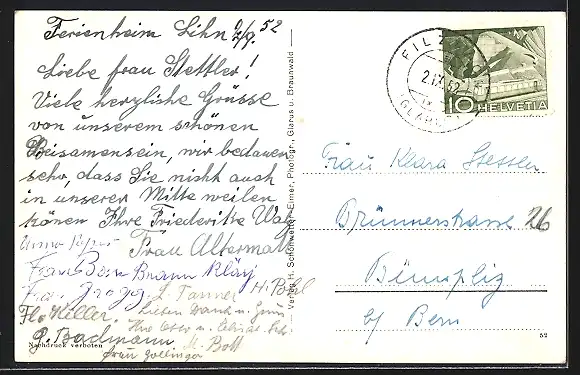 Ferienheim Lihn 2/9. 52
Liebe frau Stettler!
Viele herzliche Grüsse
von unserem schönen
Beisamensein, wir bedauern
sehr, dass Sie nicht auch
in unserer Mitte weilen
könen Ihre Friederike
Frau Altermatt
Frau Braun Kläy
Frau Grogg. L. Tanner H. Pohl
Keller.
Bachmann M. Bott
frau
Nachdruck verboten
Verlag H. Schönwetter-Elmer, Photogr., Glarus u. Braunwald
FILZ
2.IX.52
(GLARUS)
10 HELVETIA
Frau Klara Stettler
Brünnerstrasse 26
Bümpliz
b/ Bern
52